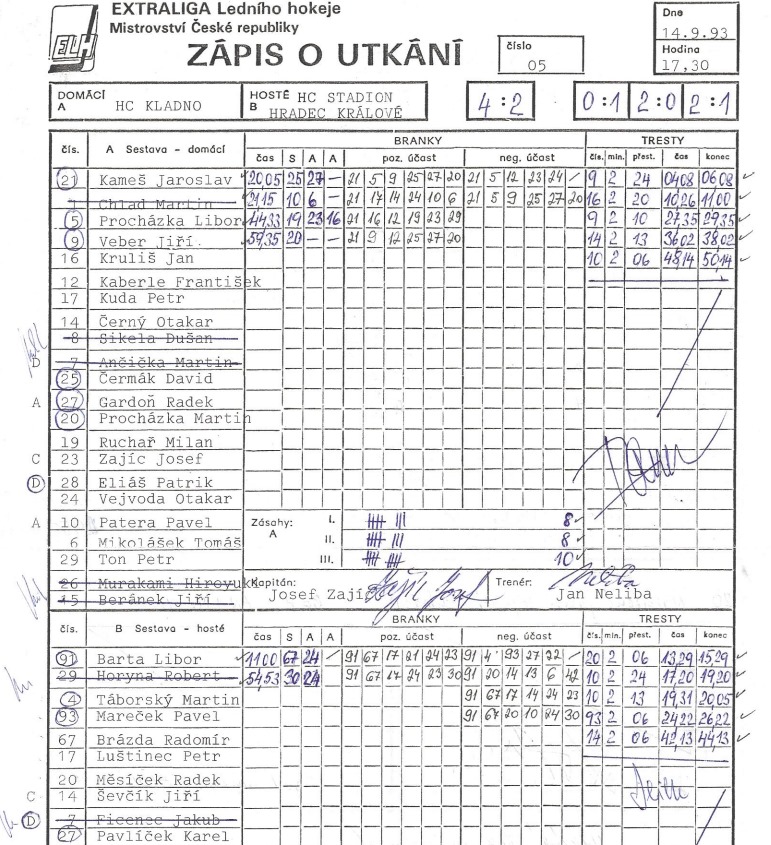 EXTRALIGA Ledního hokeje
Mistrovství České republiky
ELH
ZÁPIS O UTKÁNÍ
číslo
05
Dne
14.9.93
Hodina
17,30
DOMÁCÍ A HC KLADNO
HOSTÉ B HC STADION HRADEC KRÁLOVÉ
4:2
0:1 2:0 2:1
čís. A Sestava - domácí BRANKY TRESTY
čas S A A poz. účast neg. účast čís. min. přest. čas konec
21 Kameš Jaroslav 20,05 25 27 – 21 5 9 25 27 20 21 5 12 23 24 / 9 2 24 04,08 06,08
1 Chlad Martin 21,15 10 6 – 21 17 14 24 10 6 21 5 9 25 27 20 16 2 20 10,26 11,00
5 Procházka Libor 44,33 19 23 16 21 16 12 19 23 29 9 2 10 27,35 29,35
9 Veber Jiří. 59,35 20 – – 21 9 12 25 27 20 14 2 13 36,02 38,02
16 Kruliš Jan 10 2 06 48,14 50,14
12 Kaberle František
17 Kuda Petr
14 Černý Otakar
8 Sikela Dušan
D 7 Ančička Martin
25 Čermák David
A 27 Gardoň Radek
20 Procházka Martin
19 Ruchař Milan
C 23 Zajíc Josef
D 28 Eliáš Patrik
24 Vejvoda Otakar
A 10 Patera Pavel Zásahy: A I. 8
6 Mikolášek Tomáš II. 8
29 Ton Petr III. 10
26 Murakami Hiroyuki Kapitán: Trenér:
15 Beránek Jiří Josef Zajíc Jan Neliba
čís. B Sestava - hosté BRANKY TRESTY
čas S A A poz. účast neg. účast čís. min. přest. čas konec
91 Barta Libor 11,00 67 24 – 91 67 17 21 24 23 91 4 93 27 22 / 20 2 06 13,29 15,29
29 Horyna Robert 54,53 30 24 91 67 17 24 23 30 91 20 14 13 6 42 10 2 24 17,20 19,20
4 Táborský Martin 91 67 17 14 24 23 10 2 13 19,31 20,05
93 Mareček Pavel 91 67 20 10 24 30 93 2 06 24,22 26,22
67 Brázda Radomír 14 2 06 42,13 44,13
17 Luštinec Petr
20 Měsíček Radek
C 14 Ševčík Jiří
D 7 Ficenec Jakub
27 Pavlíček Karel